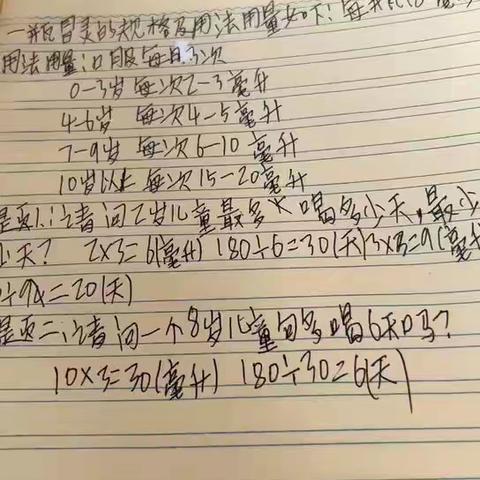 一瓶冒灵的规格及用法用量如下：每
用法用量：口服每日3次
0-3岁 每次2-3毫升
4-6岁 每次4-5毫升
7-9岁 每次6-10毫升
10岁以上 每次15-20毫升
是页1.:请问2岁儿童最多 喝多少天,最少
少天? 2x3=6(毫升) 180÷6=30(天)3x3=9(毫升
÷9x=20(天)
是页二:请问一个8岁儿童句多喝6天吗?
10x3=30(毫升) 180÷30=6(天)